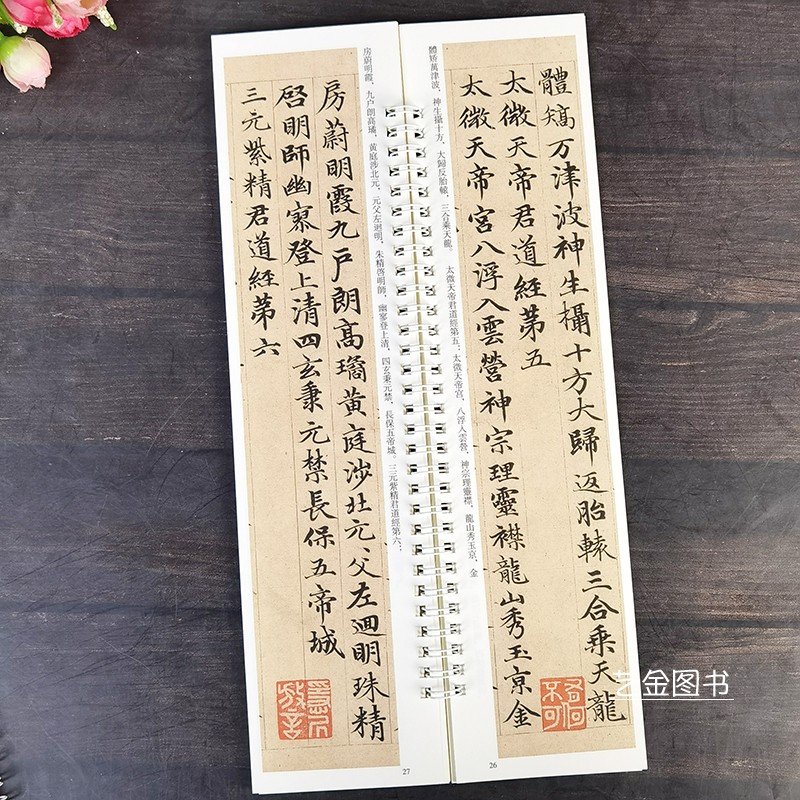 體矯万津波神生攝十方大歸返胎轅三合乘天龍
太微天帝君道經第五
太微天帝宮八浮入雲營神宗理靈襟龍山秀玉京金
體矯萬津波，神生攝十方，大歸反胎轅，三合乘天龍。 太微天帝君道經第五：太微天帝宮，八浮入雲營，神宗理靈襟，龍山秀玉京，金
26
房蔚明霞九戶朗高璚黃庭涉北元〻父左迴明珠精
啓明師幽寥登上清四玄秉元禁長保五帝城
三元紫精君道經第六
房蔚明霞，九户朗高璚，黄庭涉北元，元父左迴明，朱精啓明師，幽寥登上清，四玄秉元禁，長保五帝城。三元紫精君道經第六：
27
艺金图书